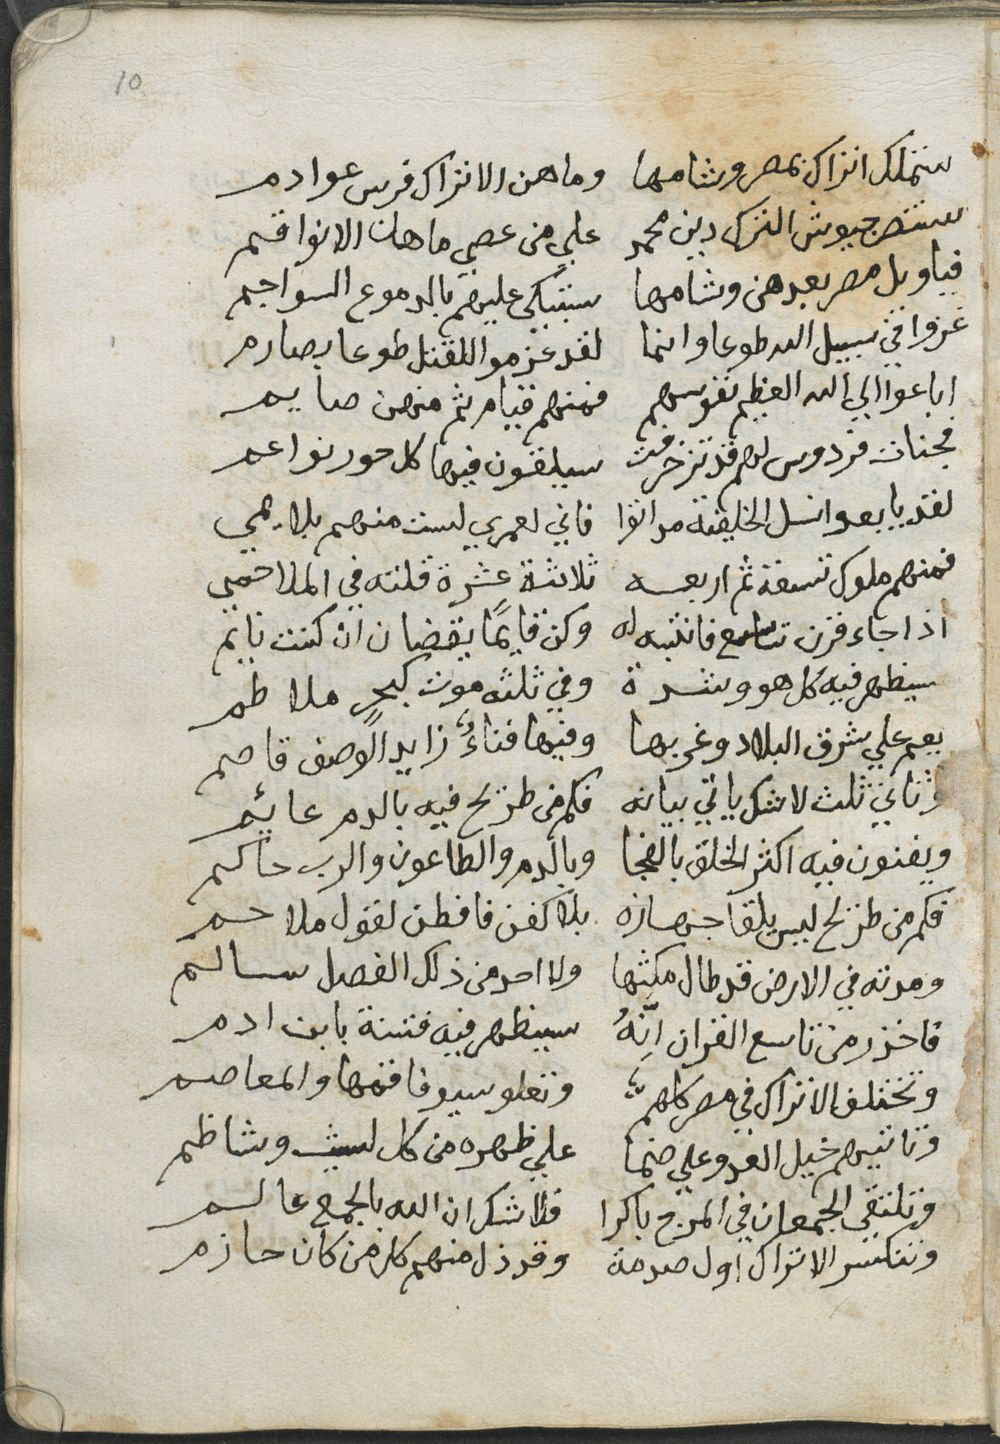 10
ستملك اتراك بمصر وشامها وما هن الاتراك فرس عوادم
ستنصر جيوش الترك دين محمد علي من عصي ما هات الانواقسم
فياويل مصر بعدهن وشامها ستبكي عليهم بالدموع السواجم
غزوا في سبيل الله طوعا وانما لقد عزموا للقتل طوعا بصارم
اباعوا الي الله العظيم نفوسهم فمنهم قيام ثم منهن صايم
فجنات فردوس لهم قد تزخرفت سيلقون فيها كل حور نواعم
لقد بايعوا نسل الخليفة فاني لعمري لست منهم بلايمي
فمنهم ملوك تسعة ثم اربعه ثلاثة عشرة قلته في الملاحمي
اذا جاء قرن تاسع فانتبه له وكن قايمًا يقضان ان كنت نايم
سيظهر فيه كل هو وشدة وفي ثلثه موت كبحرٍ ملاطم
يعم علي شرق البلاد وغربها وفيها فناءٌ زايد الوصف قاصم
وثاني ثلث لاشك ياتي بيانه فكم من طريح فيه بالدم عايم
ويفنون فيه اكثر الخلق بالفجا وبالدم والطاعون والرب حاكم
فكم من طريح ليس يلقا جهازه بلا كفن فافطن لقول ملاحم
ومدته في الارض قد طال مكثها ولا احد من ذلك الفصل سالم
فاحذر من تاسع القران انهُ سيظهر فيه فتنة يابن ادم
وتختلف الاتراك في مصر كلهم وتعلو سيوفا فقها والمعاصم
وتاتيهم خيل العدو علي ضما علي ظهره من كل ليث وشاظم
وتلتقي الجمعان في المرج باكرا فلا شك ان الله بالجمع عالم
وتنكسر الاتراك اول صدمة وقد ذل منهم كل من كان حازم